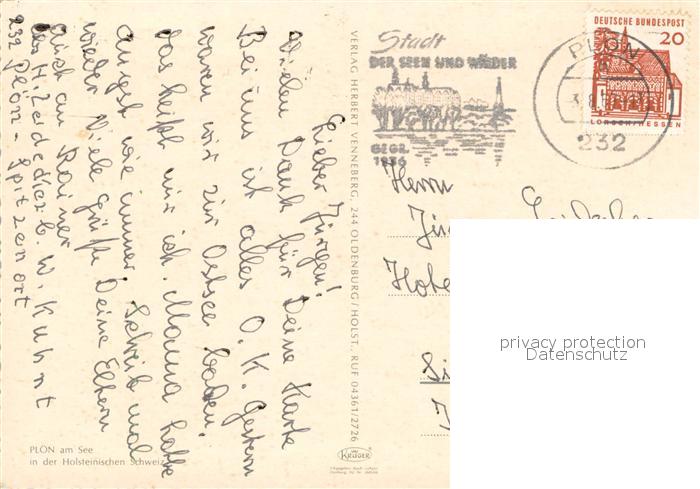 Lieber Jürgen!
Vielen Dank für Deine Karte
Bei uns ist alles O.K. Gestern
waren wir zur Ostsee baden,
das heißt nur ich. Mama hatte
Angst wie immer. Schreib mal
wieder. Viele Grüße Deine Eltern
auch an Rainer
b. W. Kuhnt
232 Plön - Spitzenort
PLÖN am See
in der Holsteinischen Schweiz
VERLAG HERBERT VENNEBERG, 244 OLDENBURG/HOLST. RUF 04361/2726
KRÜGER
Stadt
DER SEEN UND WÄLDER
GEGR.
1236
PLÖN
232
DEUTSCHE BUNDESPOST
20
LORSCH/HESSEN
Herrn
privacy protection
Datenschutz